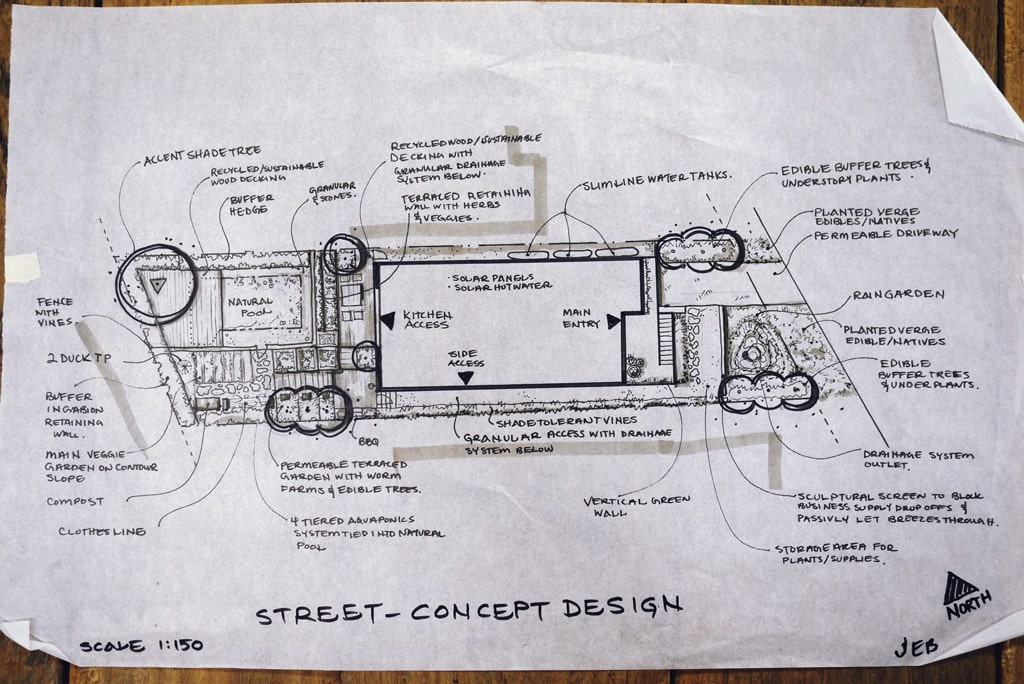 ACCENT SHADE TREE
RECYCLED/SUSTAINABLE
WOOD DECKING
BUFFER
HEDGE
GRANULAR
& STONES.
RECYCLED WOOD/SUSTAINABLE
DECKING WITH
GRANULAR DRAINAGE
SYSTEM BELOW.
TERRACED RETAINING
WALL WITH HERBS
& VEGGIES.
SLIMLINE WATER TANKS.
EDIBLE BUFFER TREES &
UNDERSTORY PLANTS.
PLANTED VERGE
EDIBLES/NATIVES
PERMEABLE DRIVEWAY
RAINGARDEN
PLANTED VERGE
EDIBLE/NATIVES
EDIBLE
BUFFER TREES
& UNDERPLANTS.
NATURAL
POOL
• SOLAR PANELS
• SOLAR HOT WATER
KITCHEN
ACCESS
MAIN
ENTRY
SIDE
ACCESS
FENCE
WITH
VINES
2 DUCK TP
BUFFER
IN GABION
RETAINING
WALL.
MAIN VEGGIE
GARDEN ON CONTOUR
SLOPE
COMPOST
CLOTHES LINE
BBQ
PERMEABLE TERRACED
GARDEN WITH WORM
FARMS & EDIBLE TREES.
4 TIERED AQUAPONICS
SYSTEM TIED INTO NATURAL
POOL
SHADE TOLERANT VINES
GRANULAR ACCESS WITH DRAINAGE
SYSTEM BELOW
VERTICAL GREEN
WALL
DRAINAGE SYSTEM
OUTLET.
SCULPTURAL SCREEN TO BLOCK
BUSINESS SUPPLY DROP OFFS &
PASSIVLY LET BREEZES THROUGH.
STORAGE AREA FOR
PLANTS/SUPPLIES.
STREET - CONCEPT DESIGN
SCALE 1:150
NORTH
JEB